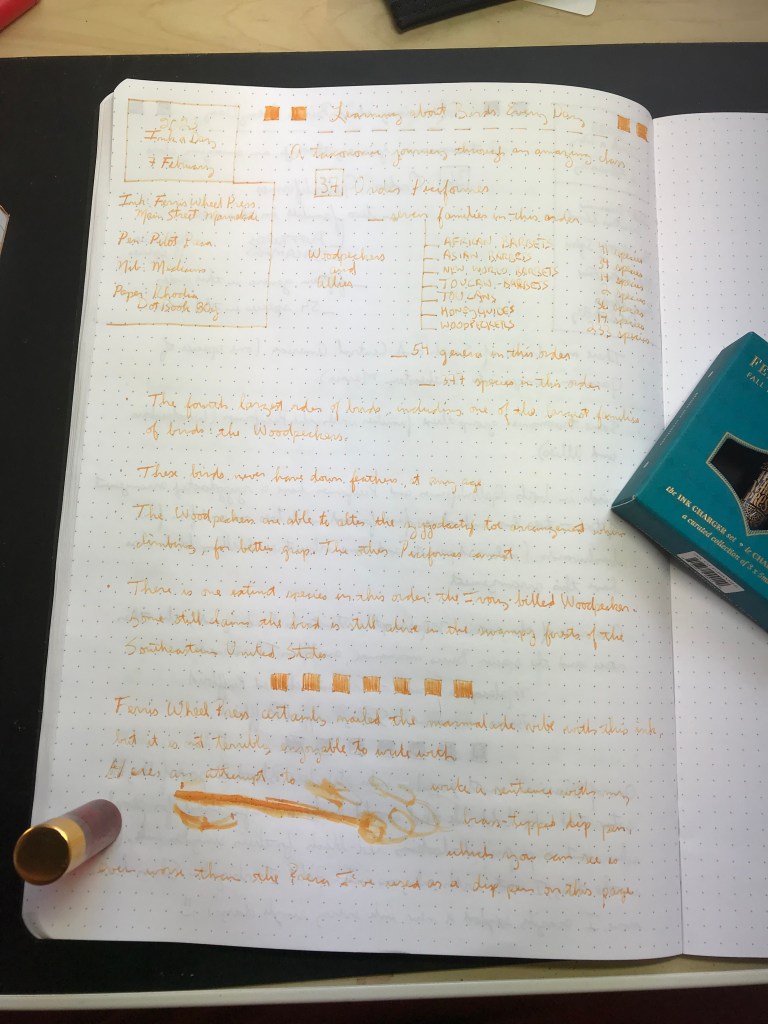 Ink a Day
7 February
Ink: Ferris Wheel Press
Main Street Marmalade
Pen: Pilot
Nib: Medium
Paper: Rhodia
Dot Book 80g
Learning about Birds Every Day
A taxonomic journey through an amazing class
37 Order Piciformes
seven families in this order
Woodpeckers
and
Allies
AFRICAN BARBETS
ASIAN BARBETS
NEW WORLD BARBETS
TOUCAN-BARBETS
TOUCANS
HONEYGUIDES
WOODPECKERS
species
species
species
species
species
species
species
genera in this order
species in this order
The fourth largest order of birds, including one of the largest families
of birds: the Woodpeckers.
These birds never have down feathers, at any age
The Woodpeckers are able to alter the zygodactyl toe arrangement when
climbing, for better grip. The other Piciformes cannot.
There is one extinct species in this order: the Ivory billed Woodpecker.
Some still claim the bird is still alive in the swampy forests of the
Southeastern United States.
Ferris Wheel Press certainly nailed the marmalade vibe with this ink,
but it is not terribly enjoyable to write with
Here's an attempt to write a sentence with my
brass-tipped dip pen,
which you can see is
even worse than the I've used as a dip pen on this page
FE
FALL
the INK CHARGER set • le CHA
a curated collection of 5 x 5ml